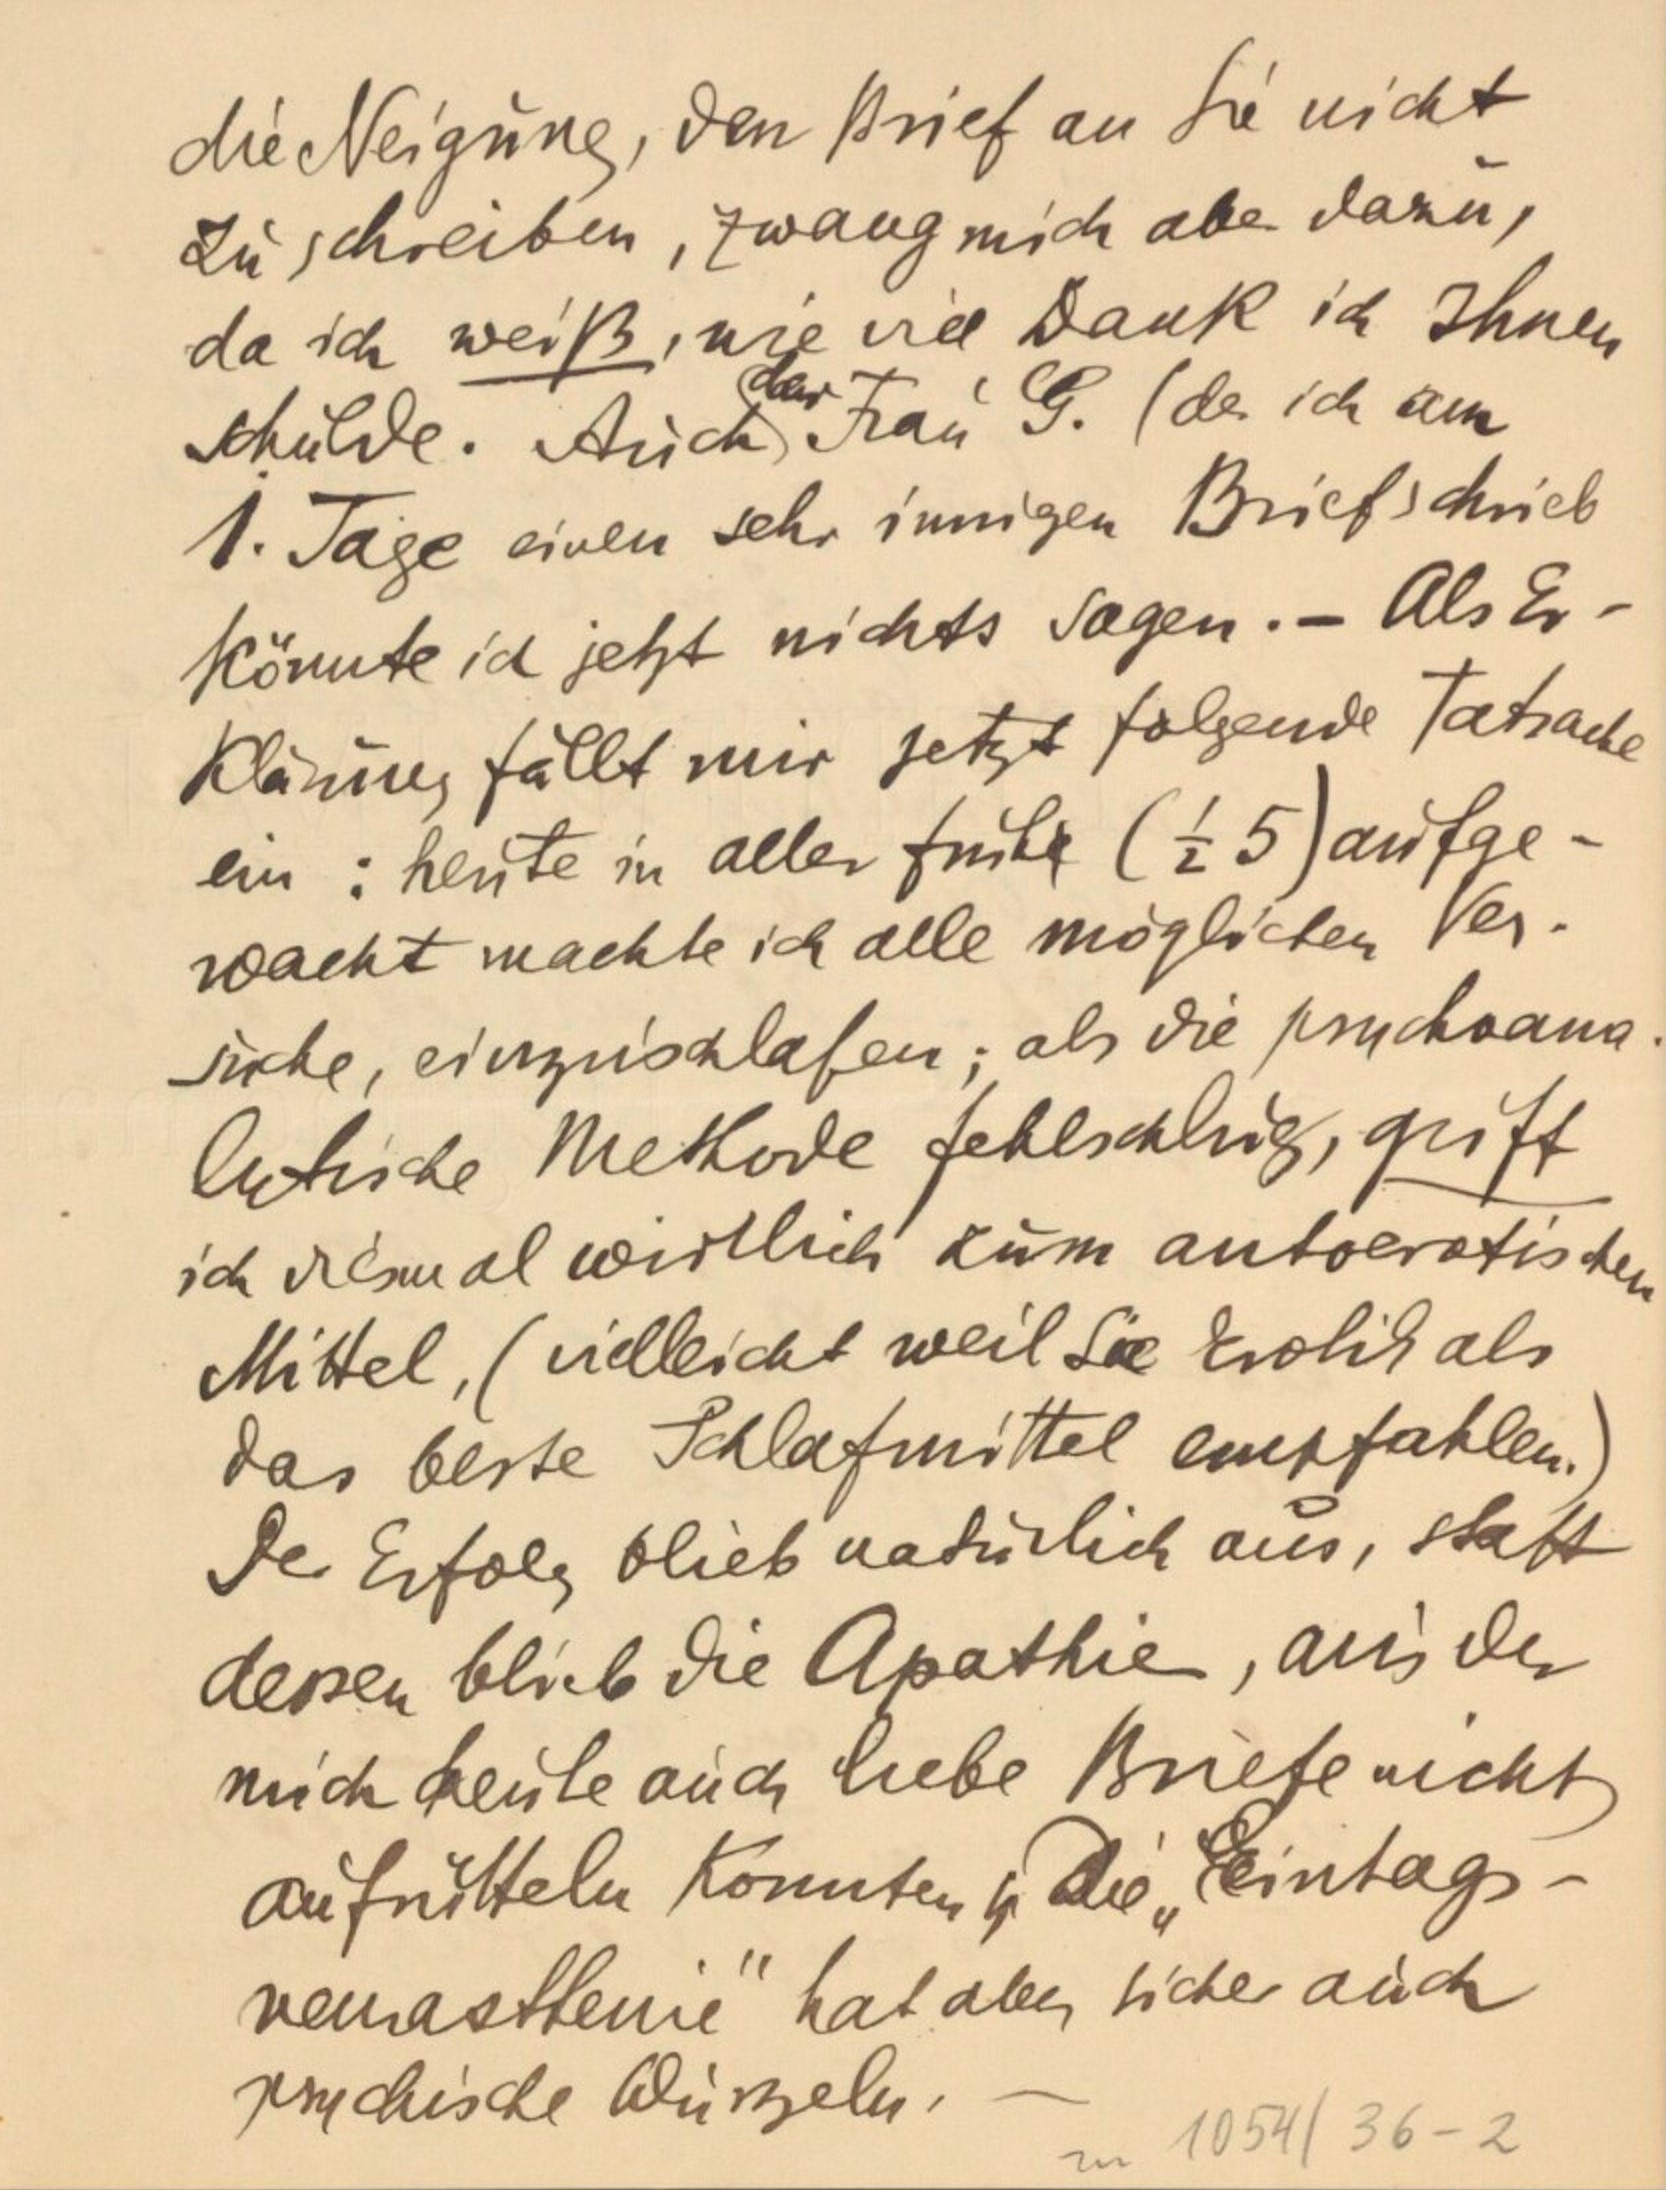 die Neigung, den Brief an Sie nicht
zu schreiben, zwang mich aber dazu,
da ich weiß, wie viel Dank ich Ihnen
schulde. Auch der Frau G. (der ich am
1. Tage einen sehr innigen Brief schrieb
könnte ich jetzt nichts sagen. – Als Er-
klärung fällt mir jetzt folgende Tatsache
ein: heute in aller frühe (½ 5) aufge-
wacht machte ich alle möglichen Ver-
suche, einzuschlafen; als die psychoana-
lytische Methode fehlschlug, griff
ich diesmal wirklich zum autoerotischen
Mittel, (vielleicht weil Sie Erotik als
das beste Schlafmittel empfahlen.)
Der Erfolg blieb natürlich aus, statt
dessen blieb die Apathie, aus der
mich heute auch liebe Briefe nicht
aufrütteln konnten. Die „Eintags-
neurasthenie" hat aber sicher auch
psychische Wurzeln. —
zu 1054/36-2